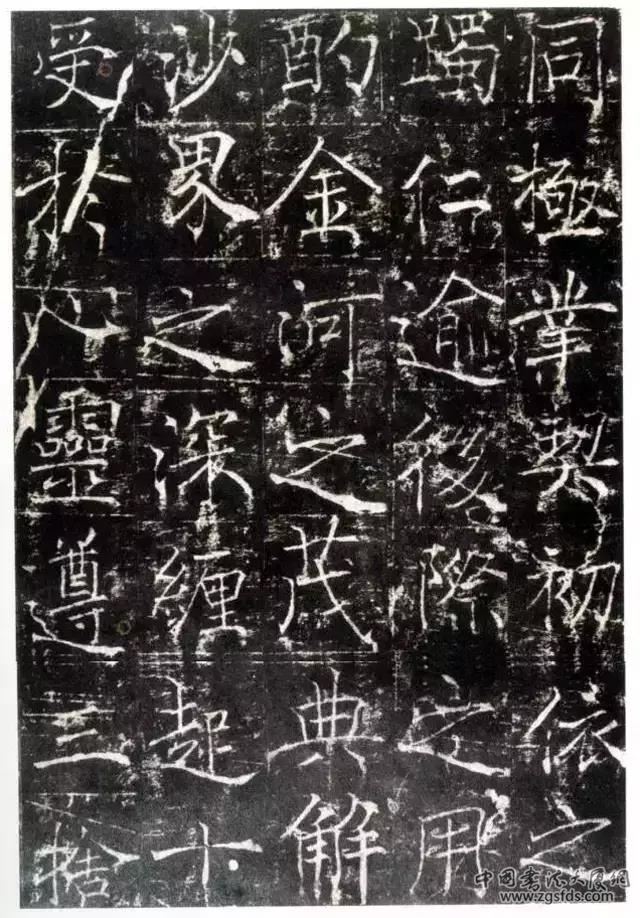 同極業契初依之
躅仁逾後際之用
酌金河之茂典解
沙界之深纏起十
受於八靈遵三
中国书法大厦网
www.zgsfds.com